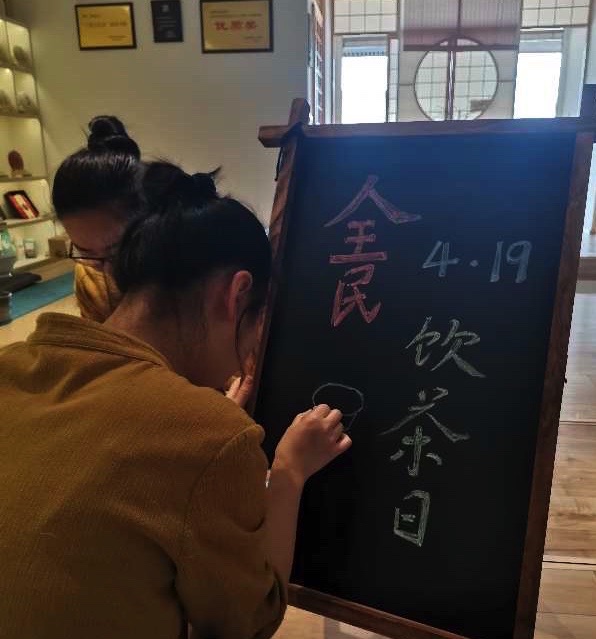 全民
4.19
饮茶日